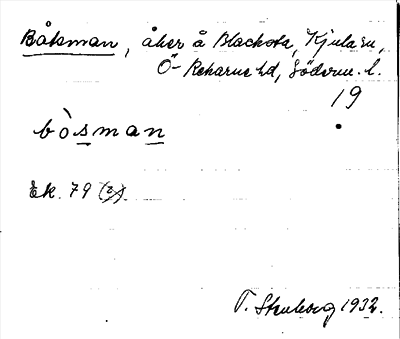 Båtsman, åker å Blacksta, Kjula sn,
Ö-Rekarne hd, Söderm. l.
19
bòsman
Ek. 79
T. Stenberg 1932.